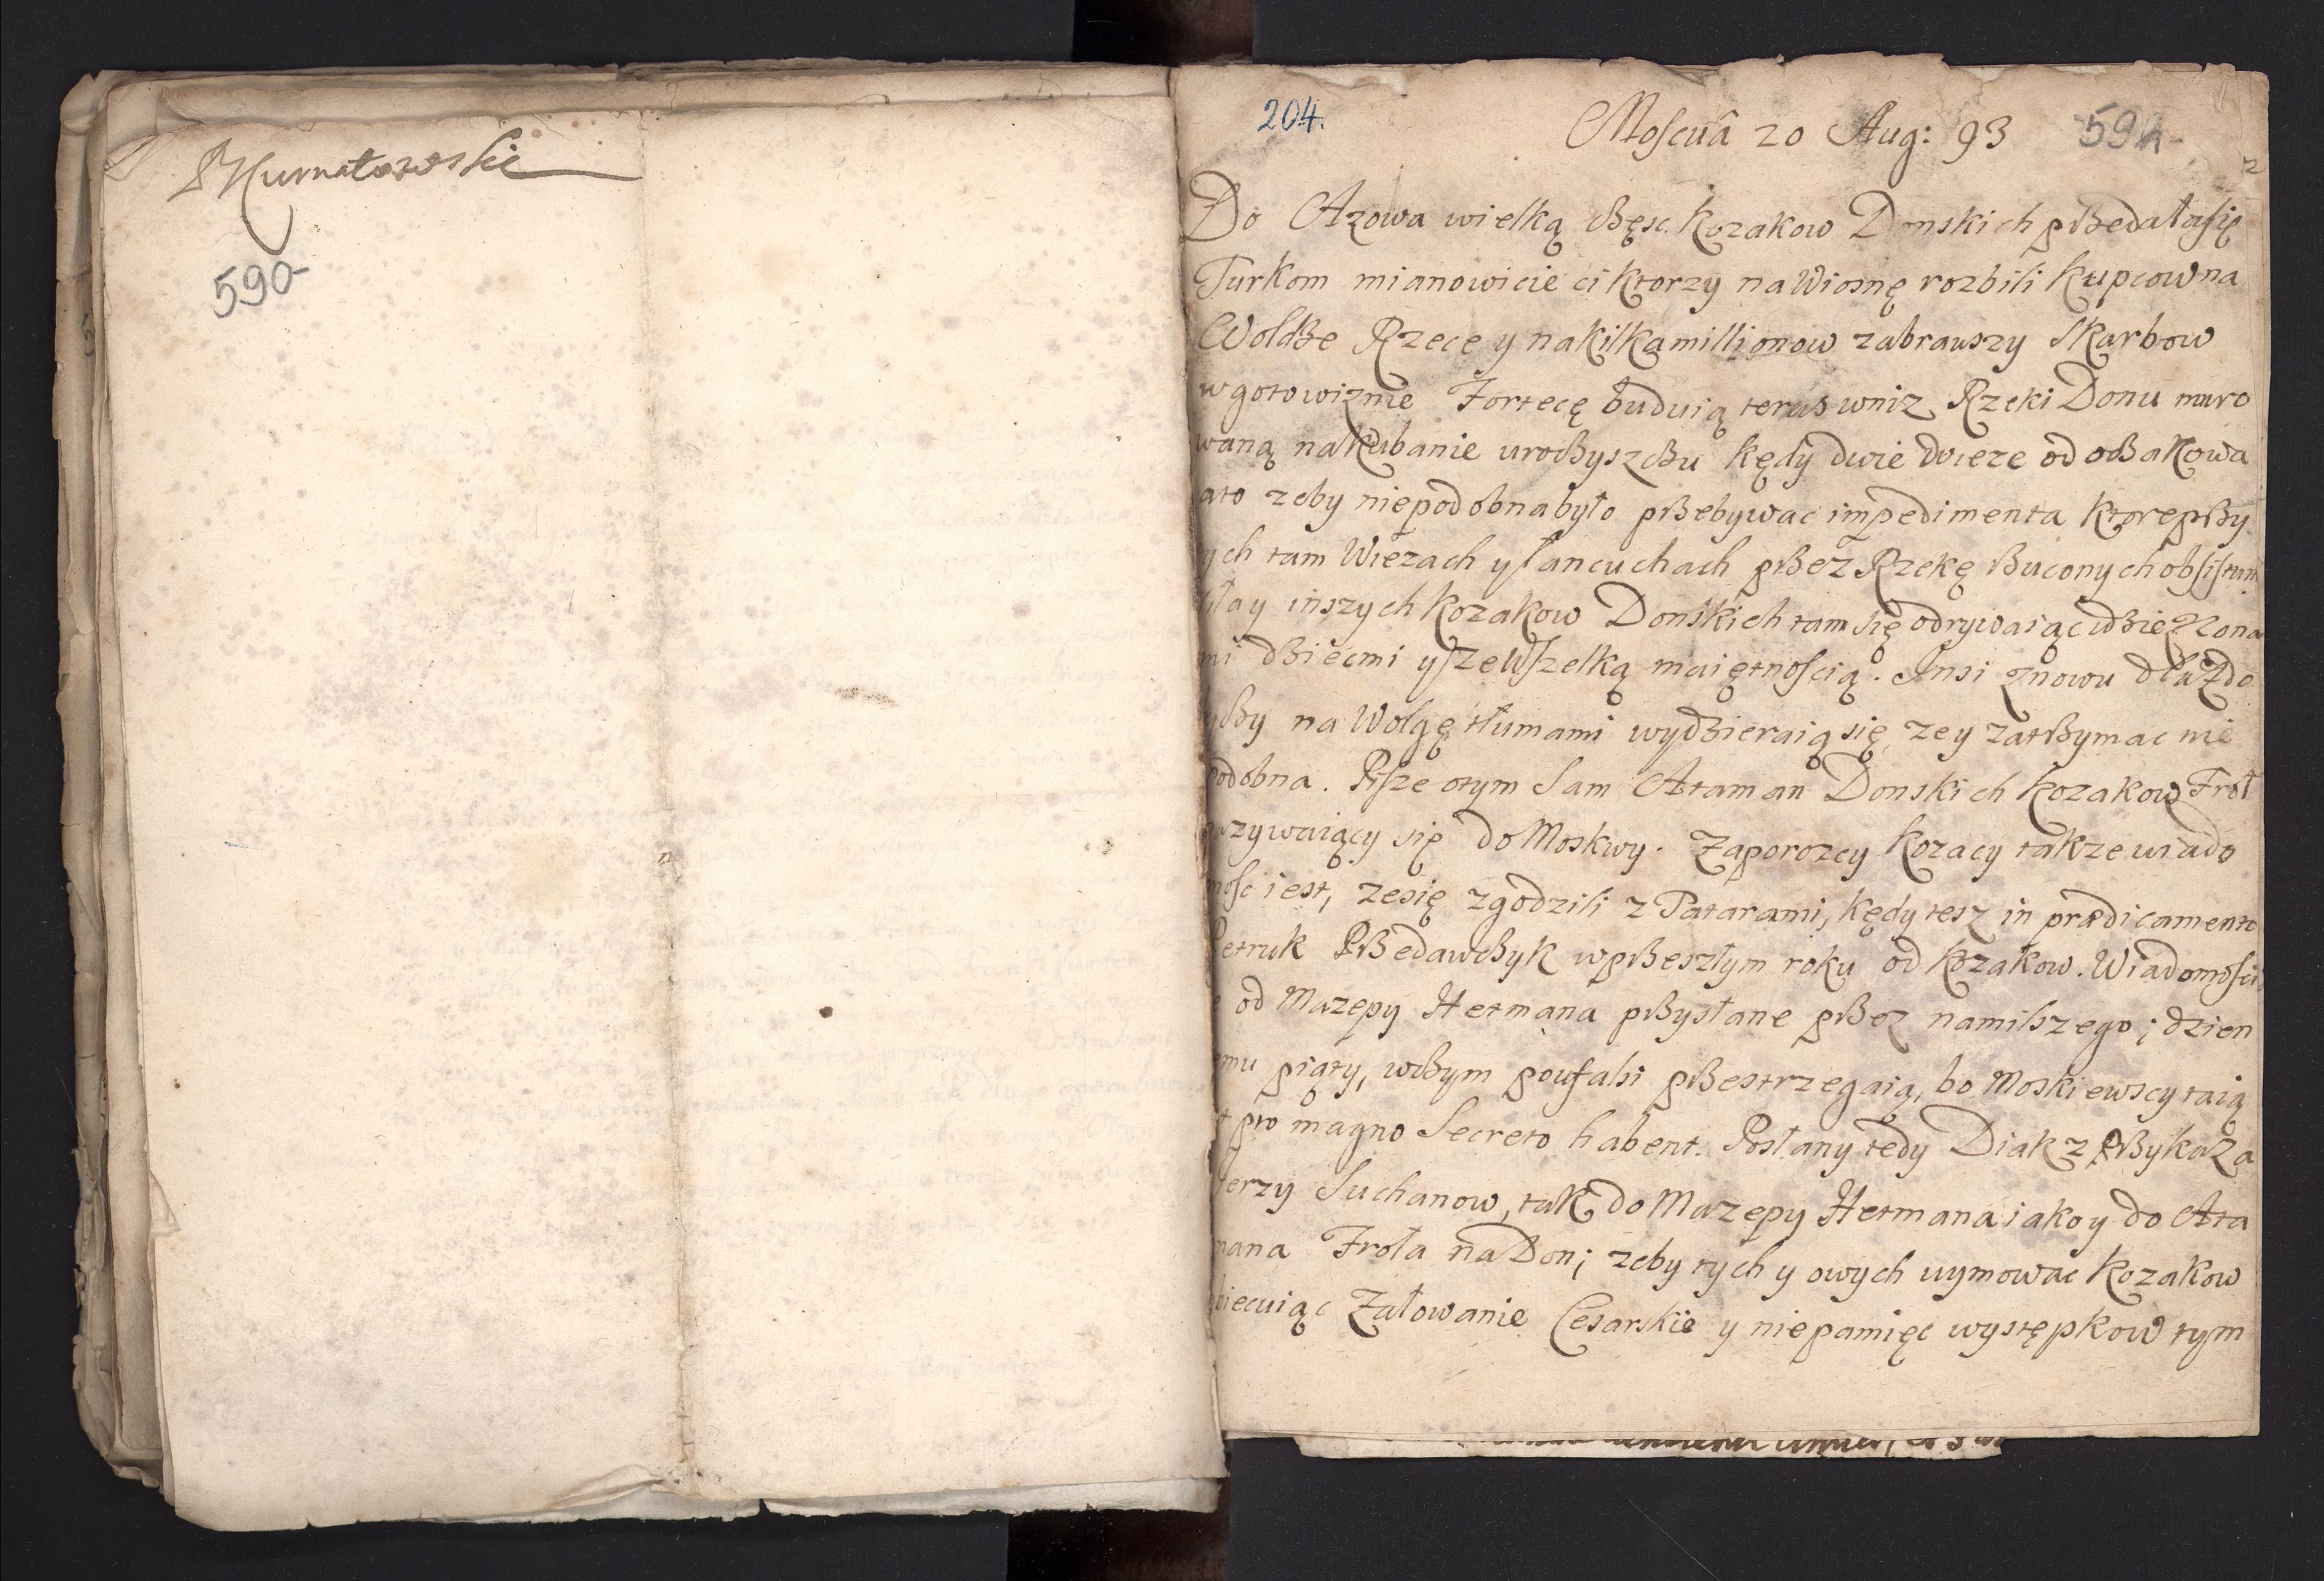 Kurnatowskie
590-
204.
Moscuâ 20 Aug: 93
Do Azowa wielką część Kozakow Donskich przedałasię
Turkom mianowicie ci ktorzy na Wiosnę rozbili kupcow na
Woldze Rzece y na kilką millionow zabrawszy skarbow
w gotowiznie Fortecę buduią teras wniz Rzeki Donu muro
waną na Kubanie uroczyszczu kędy dwie wieze od oczakowa
ato zeby niepodobna było przebywac impedimenta ktore przy
ych tam Wiezach y łancuchach przez Rzekę rzuconych obsistunt
iła y inszych Kozakow Donskich tam się odrywaiąc idzie z zona
mi dziecmi y ze wszelką maiętnoscią. Insi znowu dla zdo
yczy na Wolgę tłumami wydzieraią się, ze y zatrzymac nie
podobna. Pisze otym Sam Ataman Donskich Kozakow Froł
azywaiący się do Moskwy. Zaporozcy Kozacy takze wiado
mosc iest, ze się zgodzili z Tatarami, kędy tesz in prædicamento
Petruk Przedawczyk w przeszłym roku od Kozakow. Wiadomosci
e od Mazepy Hetmana przysłane przez namilszego; dzien
emu piąty, w czym poufali przestrzegaią, bo Moskiewscy taią
t pro magno Secreto habent. Posłany tedy Diak z Przykaza
Jerzy Suchanow, tak do Mazepy Hetmana iako y do Ata
mana Froła na Don; zeby tych y owych uymowac Kozakow
biecuiąc Załowanie Cesarskie y niepamięc występkow tym